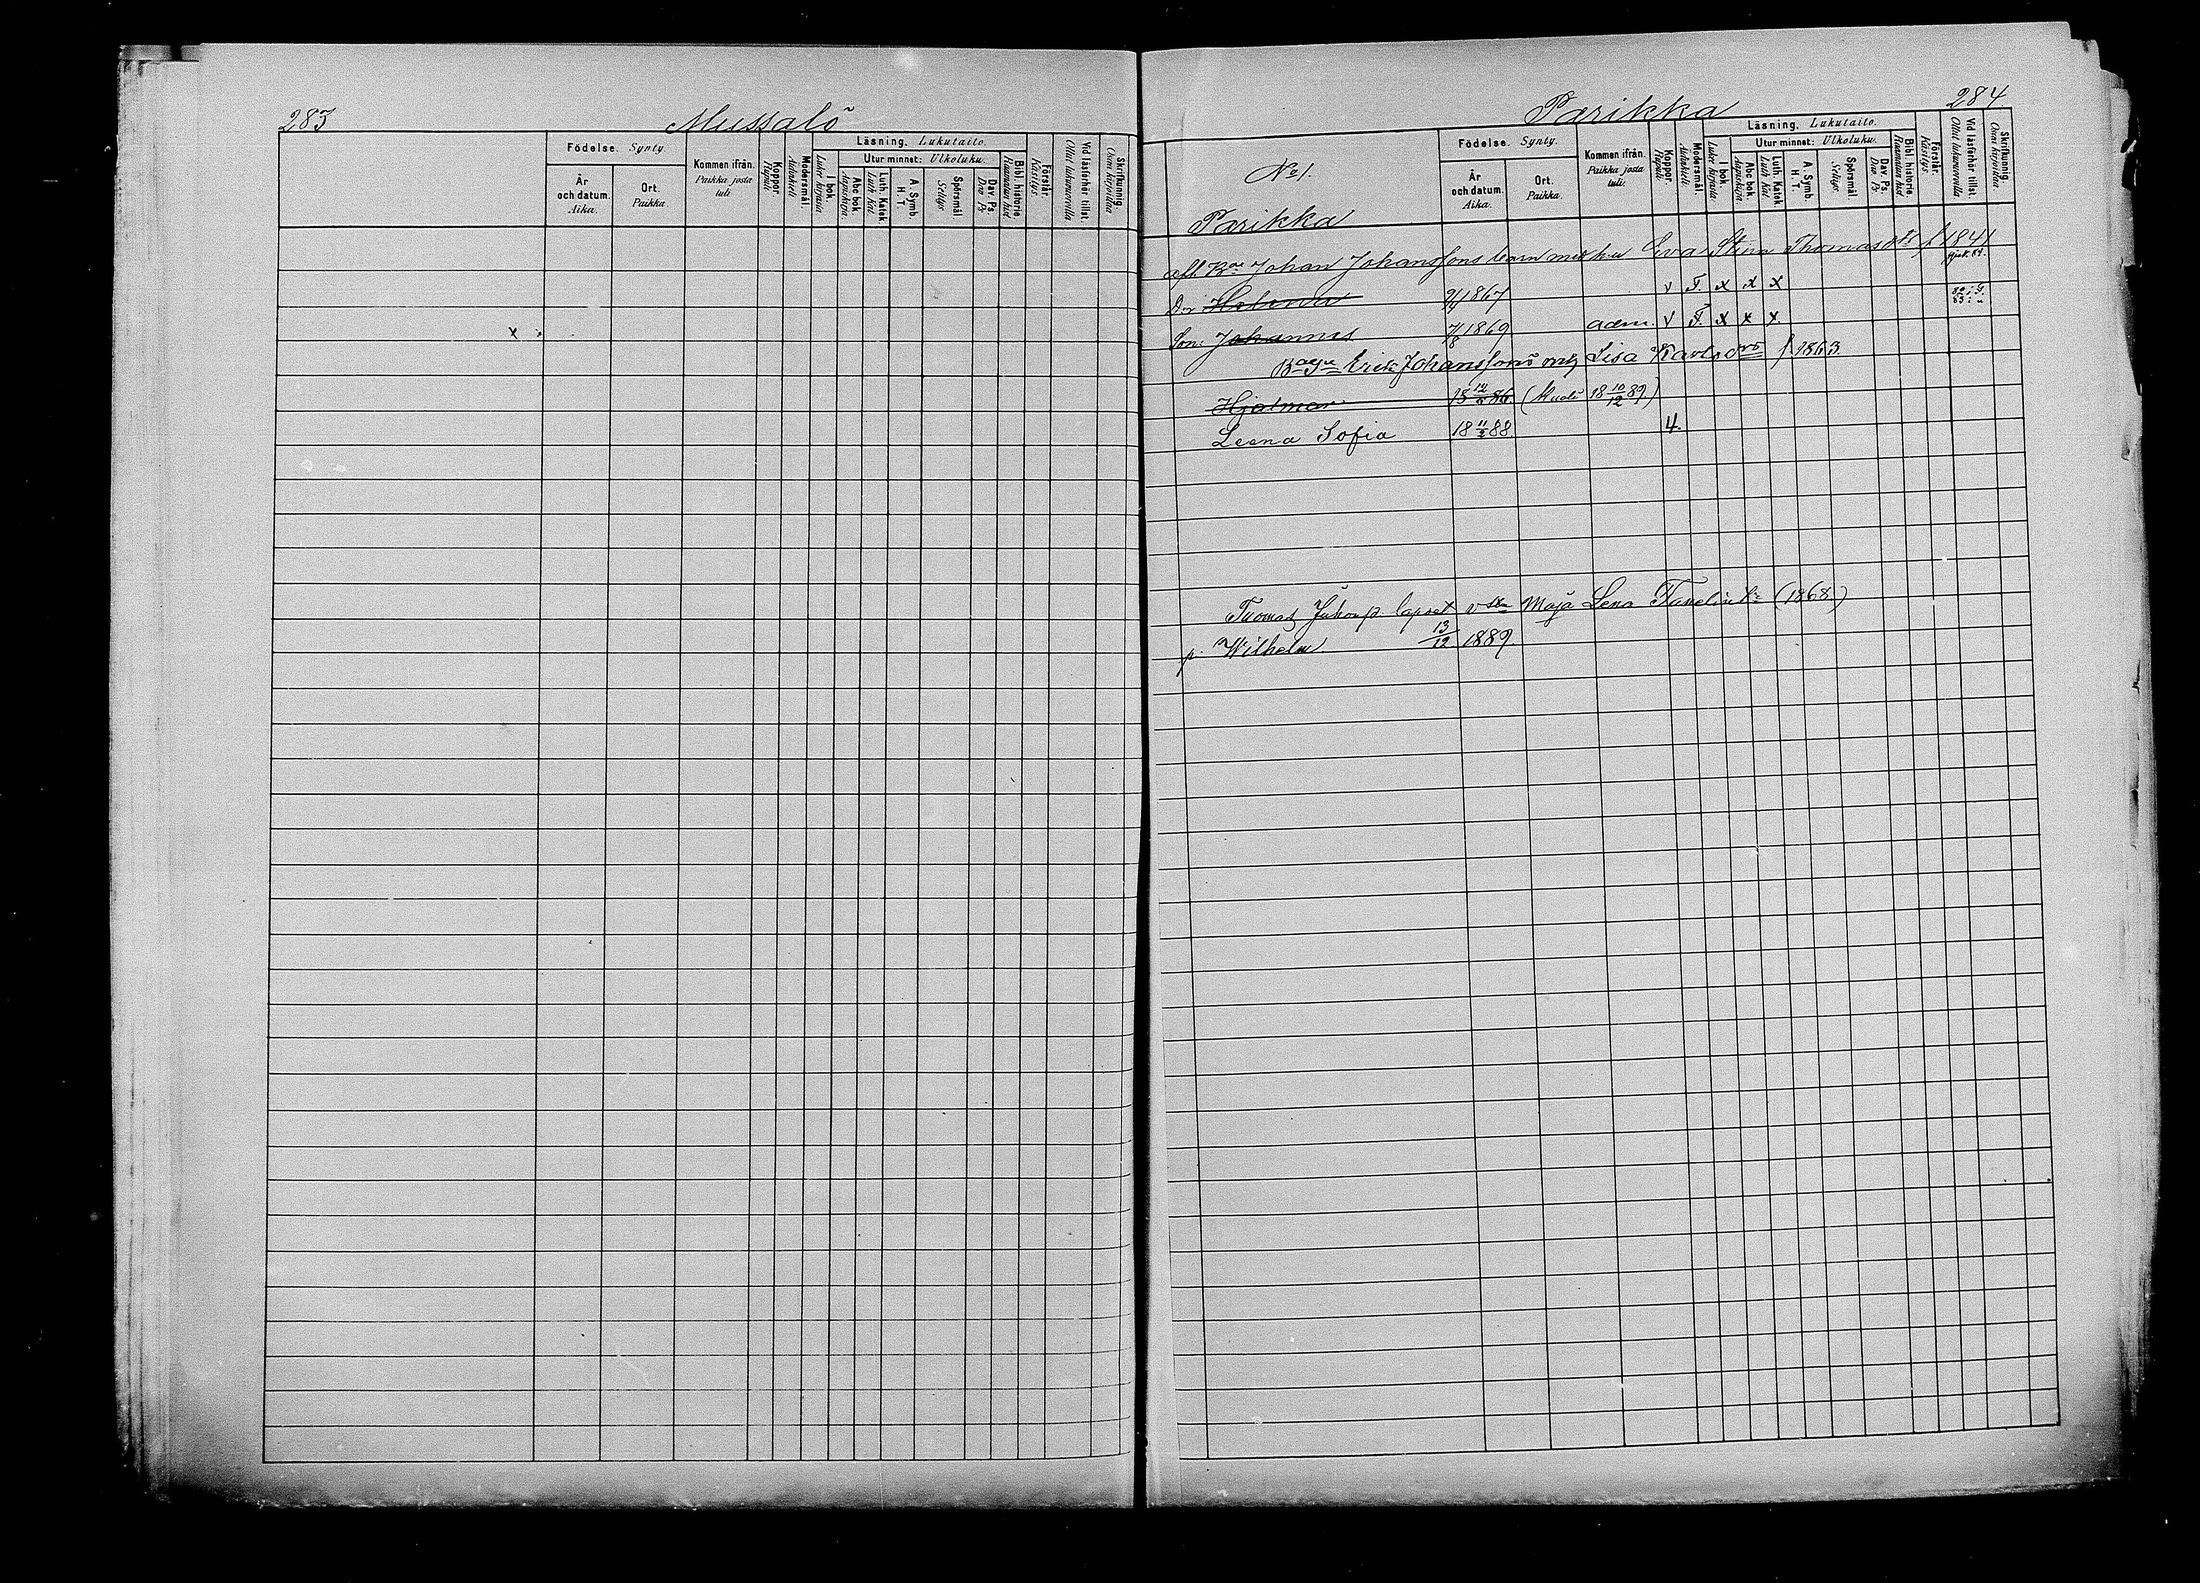 283
Mussalö
Födelse. Synty.
Kommen ifrån.
Paikka josta tuli.
Koppor. Rupuli.
Modersmål. Äidinkieli
Läsning. Lukutaito.
I bok. Lukee kirjasta
Utur minnet: Ulkoluku.
Abc bok. Aapiskirja.
Luth. Katek. Luth. Kat.
A. Symb. H. T.
Spörsmål. Selitys.
Dav. Ps. Dav. Ps
Bibl. historie. Raamatun hist.
Förstår. Käsitys.
Vid läsförhör tillst. Ollut lukuvuoroilla.
Skrifkunnig. Osaa kirjoittaa
År och datum. Aika.
Ort. Paikka.
x
Parikka
284.
No 1.
Parikka
Födelse. Synty.
Kommen ifrån.
Paikka josta tuli.
Koppor. Rupuli.
Modersmål. Äidinkieli.
Läsning. Lukutaito.
I bok. Lukee kirjasta
Utur minnet: Ulkoluku.
Abc bok. Aapiskirja.
Luth. Katek. Luth. Kat.
A. Symb. H. T.
Spörsmål. Selitys.
Dav. Ps. Dav. Ps
Bibl. historie. Raamatun hist.
Förstår. Käsitys.
Vid läsförhör tillst. Ollut lukuvuoroilla.
Skrifkunnig. Osaa kirjoittaa
År och datum. Aika.
Ort. Paikka.
afl. Johan Johanssons barn med h:u Eva Stina Thomasdtr f 1841
Dr 1867 v F. x x x
Son: Johannes 7/8 1869 adm. v F. x x x
Erik Johanssons Lisa Karlsdrs f 1863.
Hjalmar 86 (kuoli 18 10/12 89)
Leena Sofia 18 11/2 88. 4.
Tuomas Juhonp. lapset Maja Lena (1868)
p. Wilhelm 13/12 1889.